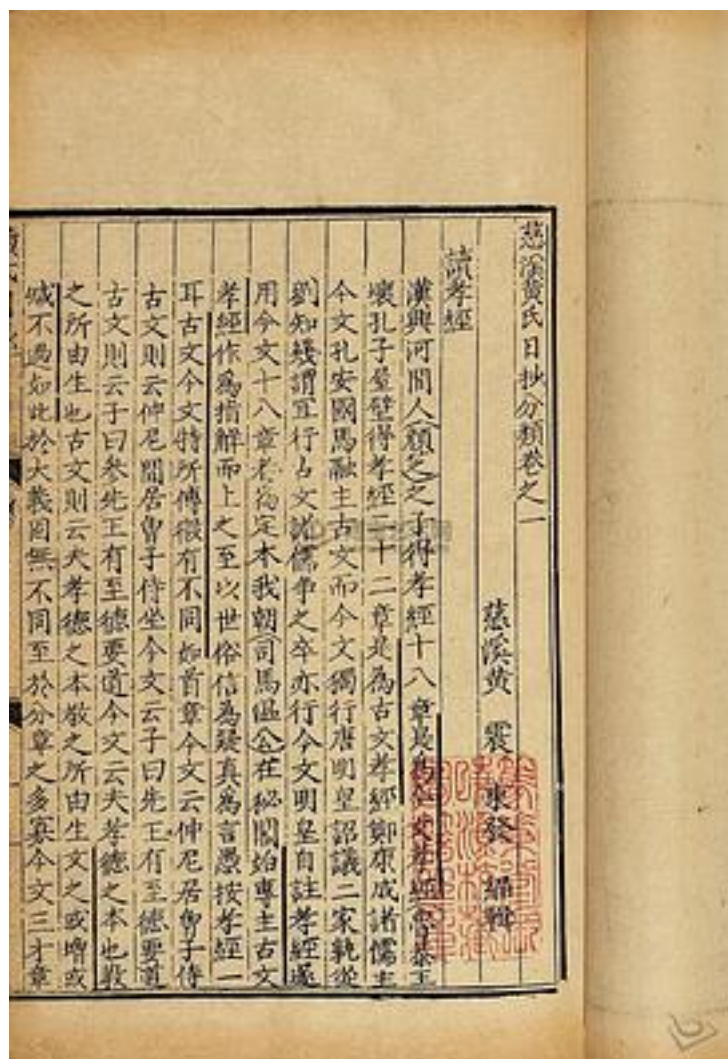 慈溪黃氏日抄分類卷之一
慈溪黃 震 東發 編輯
讀孝經
漢興河間人顏芝之子得孝經十八章是為今文孝經魯恭王
壞孔子屋壁得孝經二十二章是為古文孝經鄭康成諸儒主
今文孔安國馬融主古文而今文獨行唐明皇詔議二家孰從
劉知幾謂宜行古文諸儒爭之卒亦行今文明皇自註孝經遂
用今文十八章者為定本我朝司馬溫公在秘閣始專主古文
孝經作為指解而上之至以世俗信為疑真為言愚按孝經一
耳古文今文特所傳微有不同如首章今文云仲尼居曾子侍
古文則云仲尼閒居曾子侍坐今文云子曰先王有至德要道
古文則云子曰參先王有至德要道今文云夫孝德之本也教
之所由生也古文則云夫孝德之本教之所由生文之或增或
減不過如此於大義固無不同至於分章之多寡今文三才章